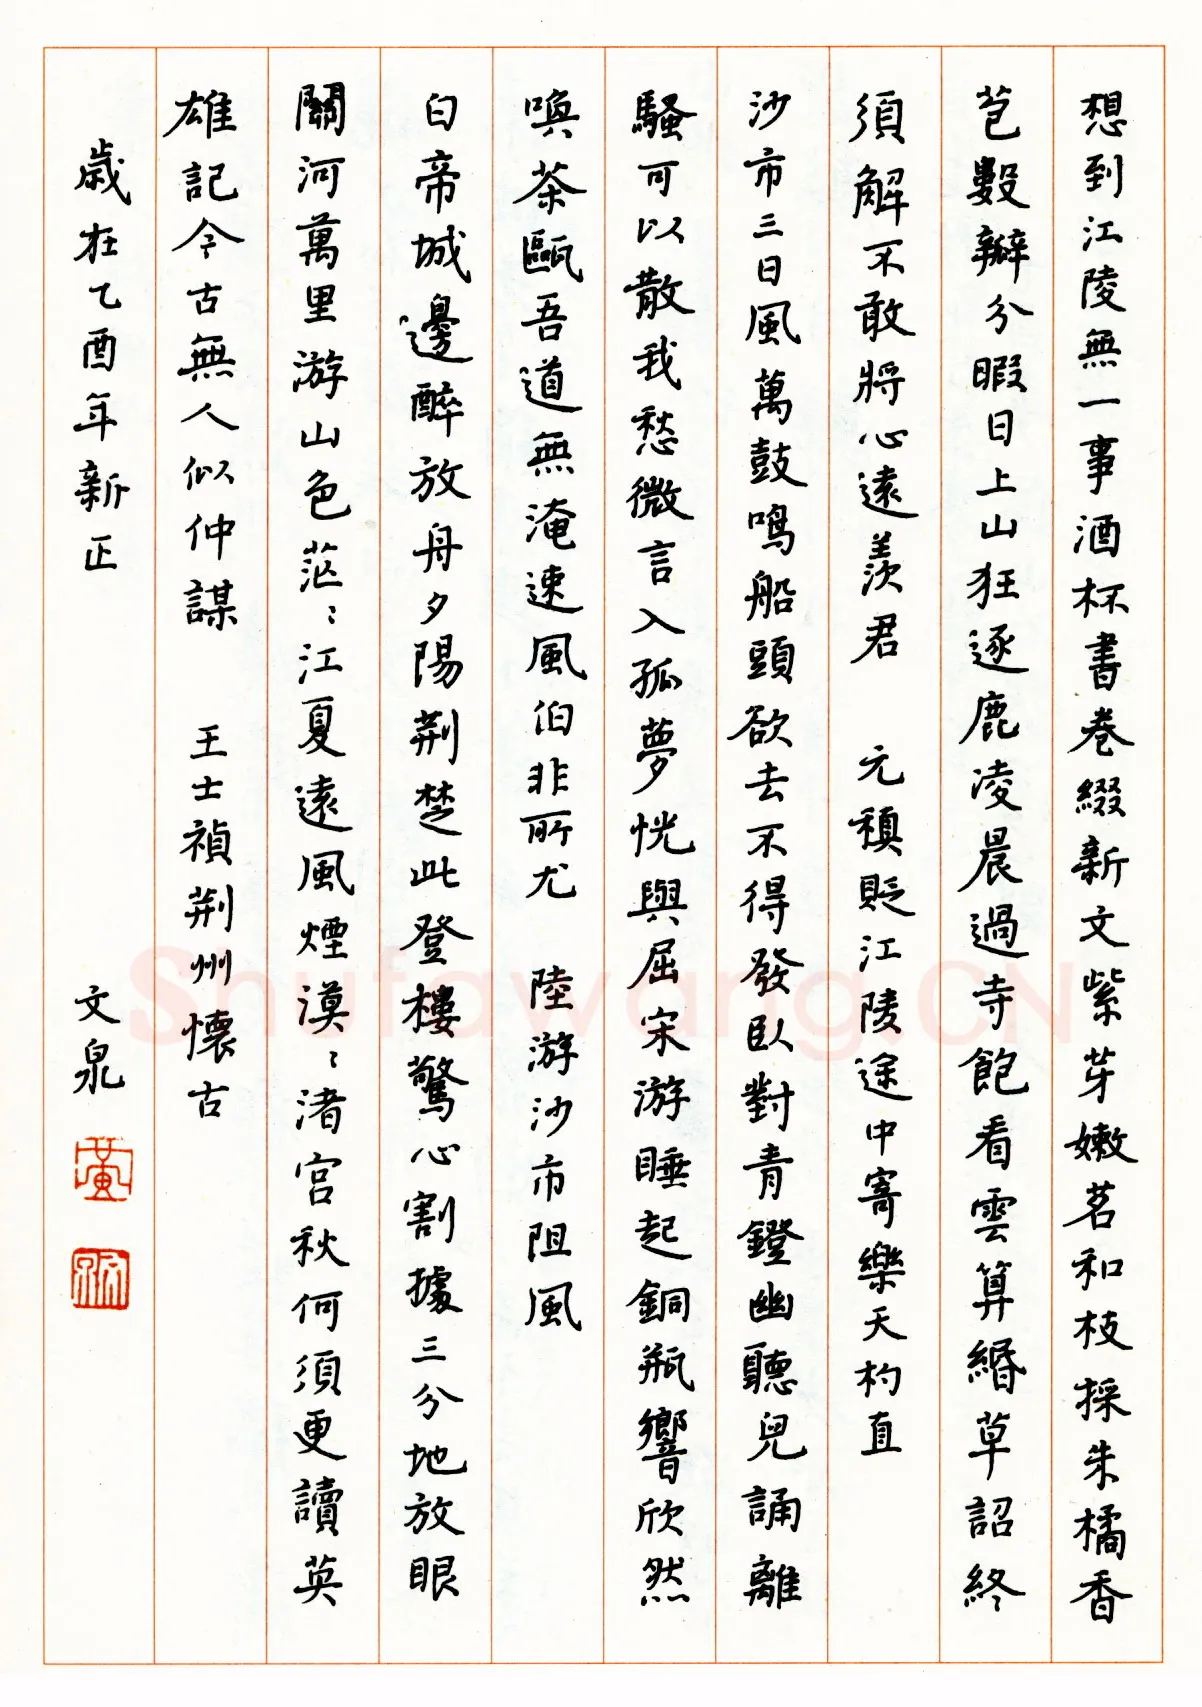 想到江陵無一事酒杯書卷綴新文紫芽嫩茗和枝採朱橘香
苞數瓣分暇日上山狂逐鹿凌晨過寺飽看雲算緡草詔終
須解不敢將心遠羨君　元稹貶江陵途中寄樂天杓直
沙市三日風萬鼓鳴船頭欲去不得發臥對青鐙幽聽兒誦離
騷可以散我愁微言入孤夢恍與屈宋游睡起銅瓶響欣然
喚茶甌吾道無淹速風伯非所尤　陸游沙市阻風
白帝城邊醉放舟夕陽荆楚此登樓驚心割據三分地放眼
關河萬里游山色茫〻江夏遠風煙漠〻渚宮秋何須更讀英
雄記今古無人似仲謀　王士禎荆州懷古
歲在乙酉年新正　文泉
Shufawang.CN